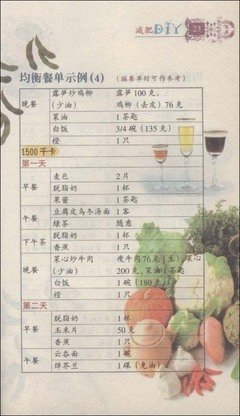 减肥 DIY 23
均衡餐单示例(4) (编餐单时可作参考)
晚餐 露笋炒鸡柳 露笋100克,
(少油) 鸡柳(去皮)76克
菜油 1茶匙
白饭 3/4碗(135克)
橙 1只
1500千卡
第一天
早餐 麦包 2片
脱脂奶 1杯
果酱 1茶匙
午餐 豆腐皮乌冬汤面 1客
绿茶 随意
下午茶 脱脂奶 1杯
香蕉 1只
晚餐 菜心炒牛肉 瘦牛肉76克(生) 菜心
(少油) 200克,菜油1茶匙
白饭 1碗(180克)
橙 1只
第二天
早餐 脱脂奶 1杯
玉米片 50克
香蕉 1只
午餐 云吞面 1碗
焯芥兰 1碟(免油)